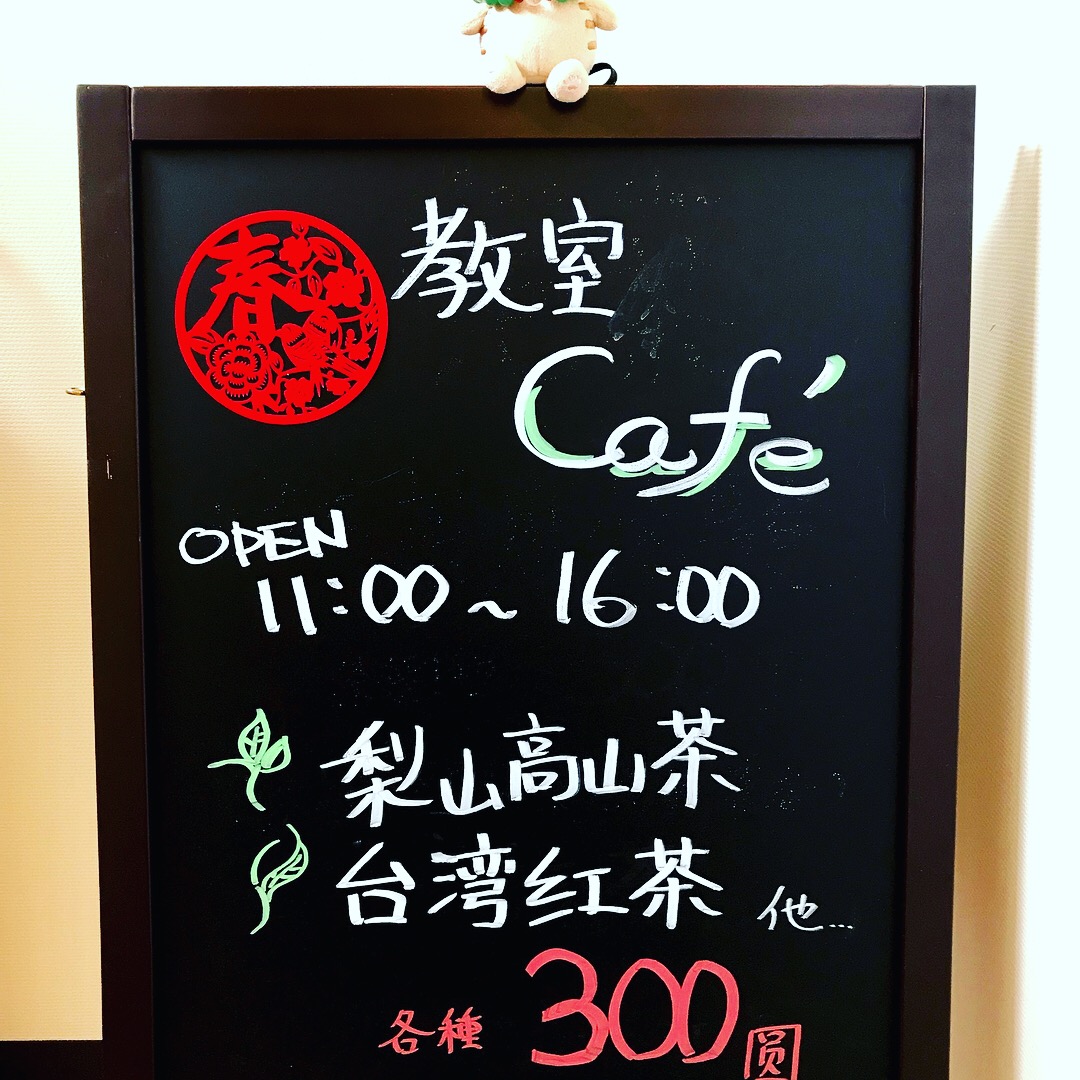 春
教室
Café
OPEN
11:00~16:00
梨山高山茶
台湾红茶 他...
各種 300圆